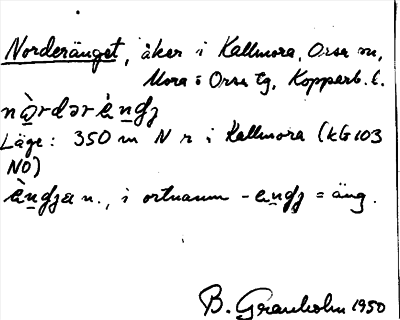 Norderänget, åker i Kallmora, Orsa sn,
Mora o Orsa tg, Kopparb. l.
nòrdərèngʒ
Läge: 350 m N n i Kallmora (kG103
NÖ)
èngʒa n., i ortnamn -engʒ = äng.
B. Granholm 1950